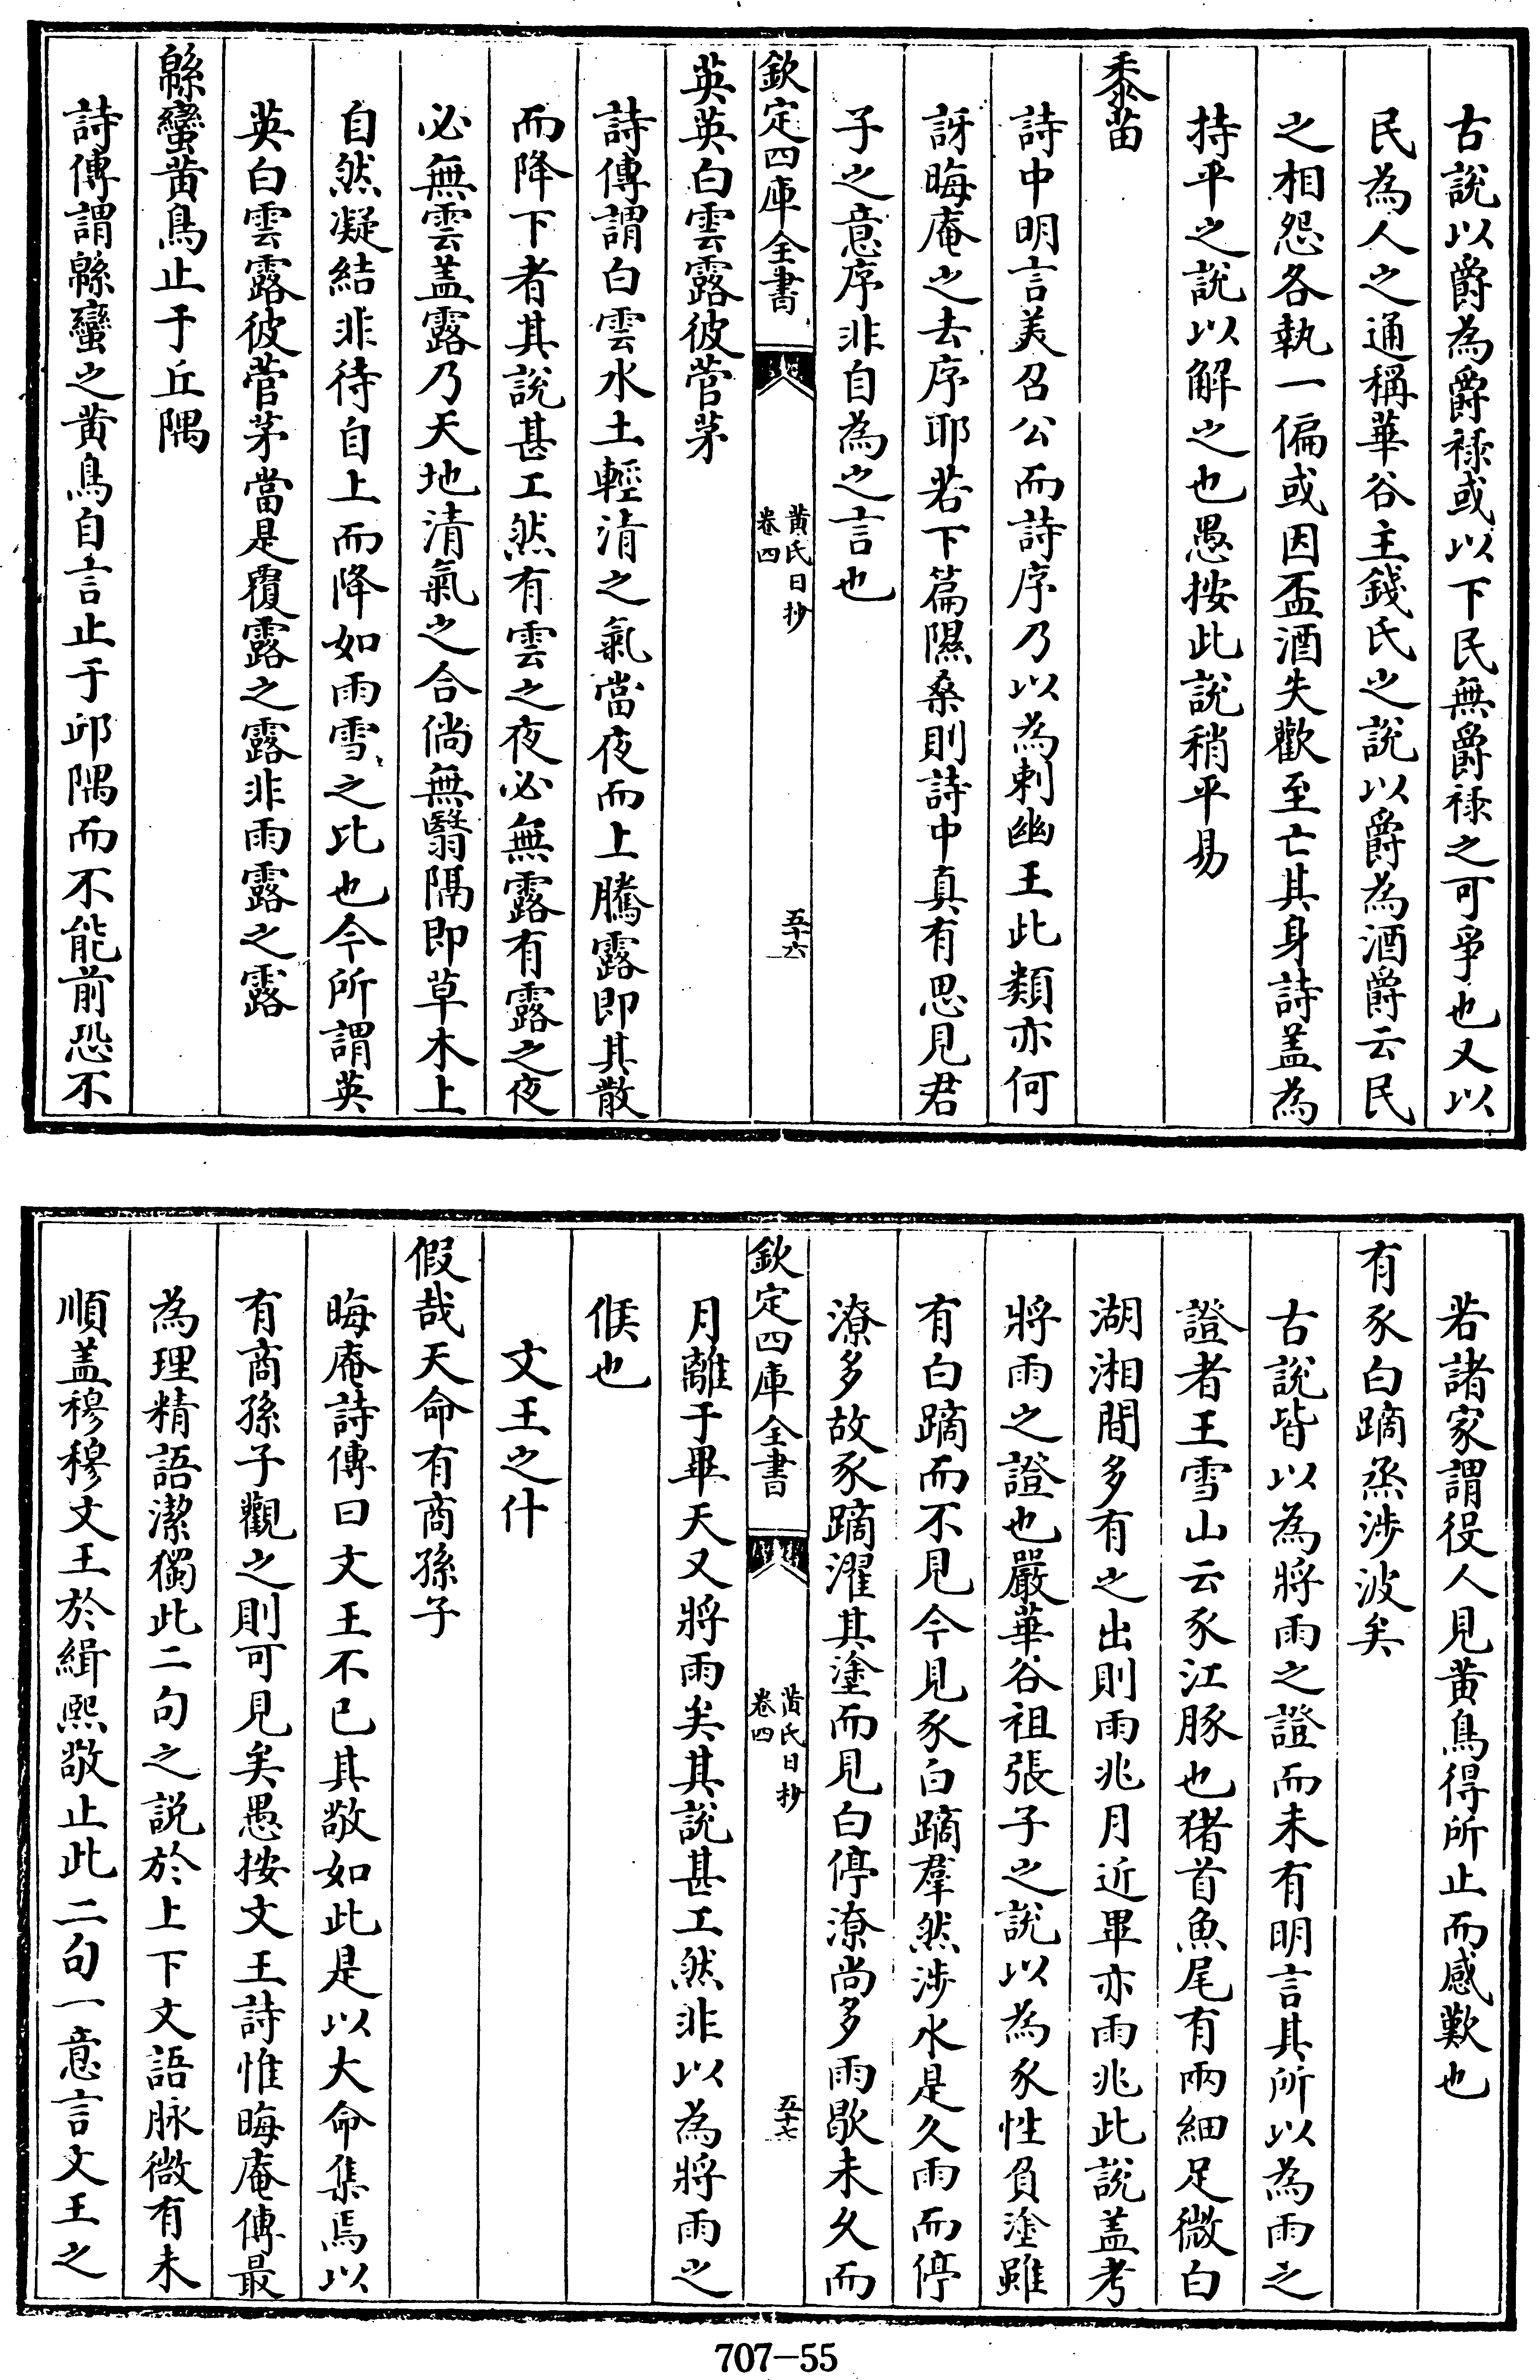 古説以爵為爵禄或以下民無爵禄之可爭也又以
民為人之通稱華谷主錢氏之説以爵為酒爵云民
之相怨各執一偏或因盃酒失歡至亡其身詩盖為
持平之説以解之也愚按此説稍平易
黍苗
詩中明言美召公而詩序乃以為刺幽王此類亦何
訝晦庵之去序耶若下篇隰桑則詩中真有思見君
子之意序非自為之言也
欽定四庫全書
黄氏日抄
卷四
五十六
英英白雲露彼菅茅
詩傳謂白雲水土輕清之氣當夜而上騰露即其散
而降下者其說甚工然有雲之夜必無露有露之夜
必無雲盖露乃天地清氣之合倘無翳隔即草木上
自然凝結非待自上而降如雨雪之比也今所謂英
英白雲露彼菅茅當是覆露之露非雨露之露
緜蠻黄鳥止于丘隅
詩傳謂緜蠻之黄鳥自言止于邱隅而不能前恐不
若諸家謂役人見黄鳥得所止而感歎也
有豕白蹢烝涉波矣
古說皆以為將雨之證而未有明言其所以為雨之
證者王雪山云豕江豚也猪首魚尾有兩細足微白
湖湘間多有之出則雨兆月近畢亦雨兆此說盖考
將雨之證也嚴華谷祖張子之說以為豕性負塗雖
有白蹢而不見今見豕白蹢羣然涉水是久雨而停
潦多故豕蹢濯其塗而見白停潦尚多雨歇未久而
欽定四庫全書
黄氏日抄
卷四
五十七
月離于畢天又將雨矣其說甚工然非以為將雨之
候也
文王之什
假哉天命有商孫子
晦庵詩傳曰文王不已其敬如此是以大命集焉以
有商孫子觀之則可見矣愚按文王詩惟晦庵傳最
為理精語潔獨此二句之說於上下文語脉微有未
順盖穆穆文王於緝熙敬止此二句一意言文王之
707-55